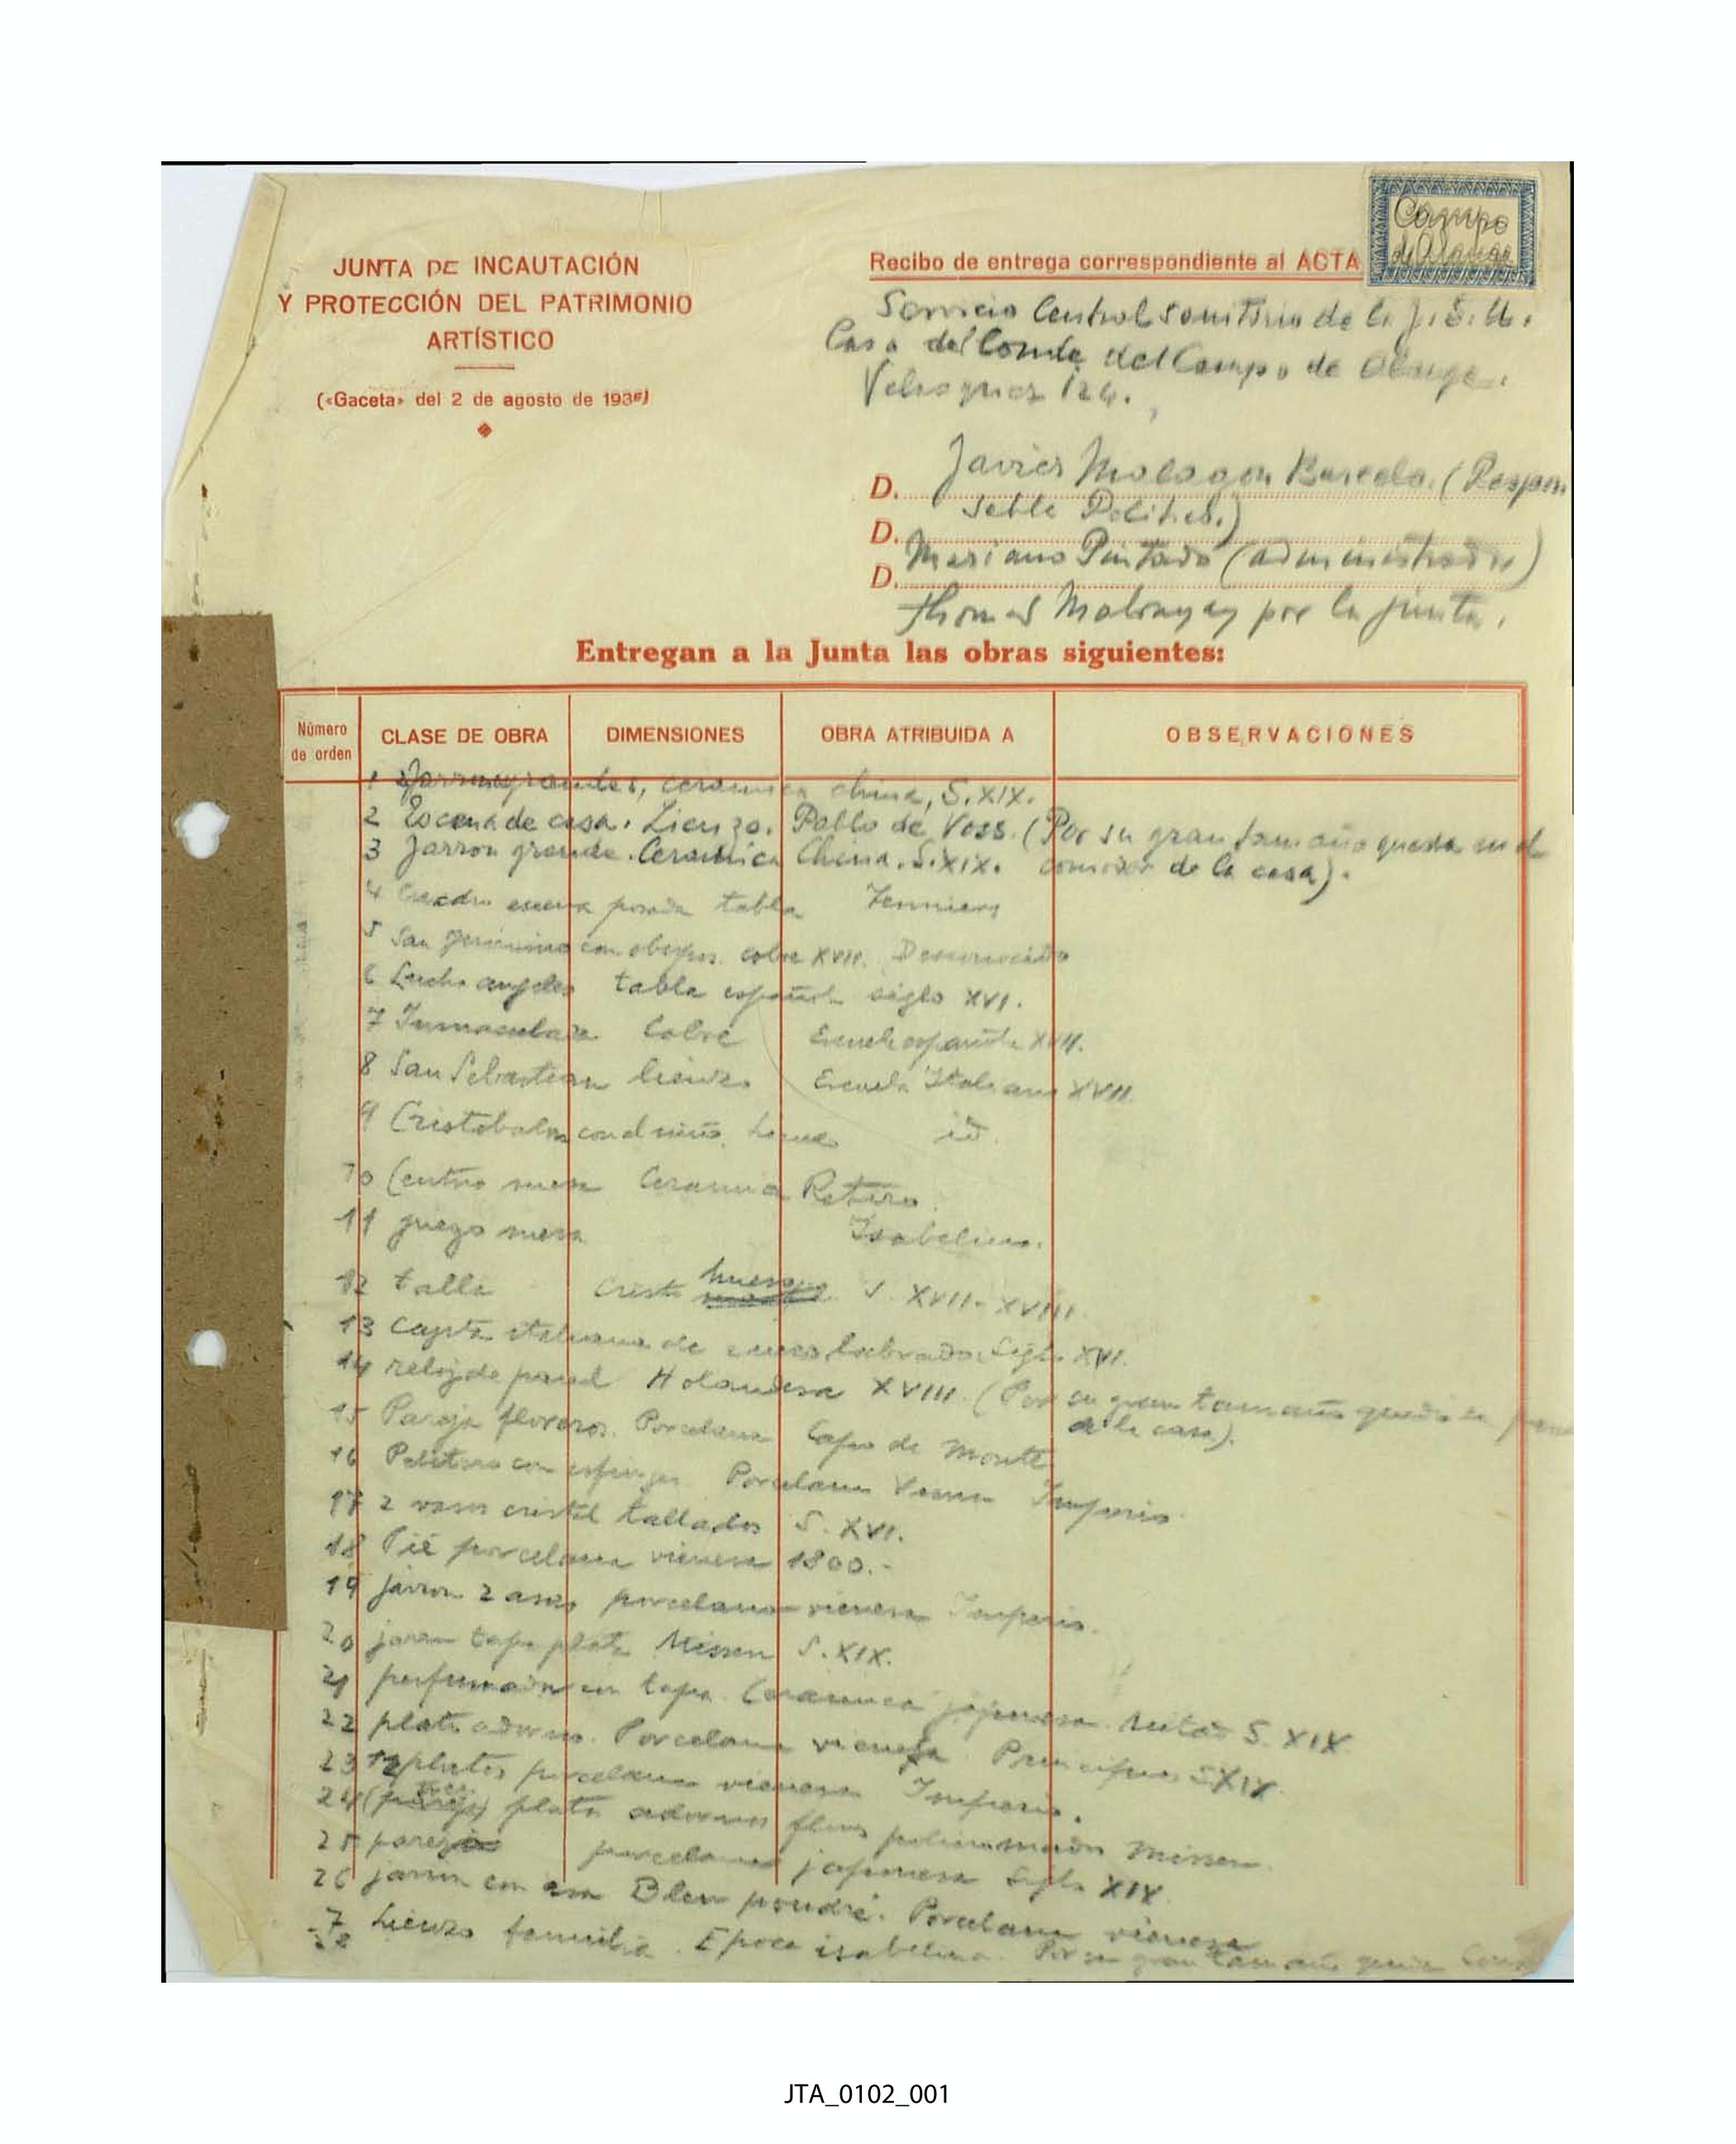 Campo
de Alange
JUNTA DE INCAUTACIÓN
Y PROTECCIÓN DEL PATRIMONIO
ARTÍSTICO
(«Gaceta» del 2 de agosto de 1936)
Recibo de entrega correspondiente al ACTA
Servicio Central Sanitario de la J.S.U.
Casa del Conde del Campo de Alange.
Velazquez 124.
D. Javier Malagon Barcelo. (Respon
sable Politico.)
D. Mariano Pintado (administrador)
D.
Thomas Malonyay por la junta.
Entregan a la Junta las obras siguientes:
Número de orden CLASE DE OBRA DIMENSIONES OBRA ATRIBUIDA A OBSERVACIONES
1 grandes, ceramica china, S. XIX.
2 Escena de casa. Lienzo. Pablo de Voss. (Por su gran tamaño queda en el
3 Jarron grande. Ceramica China. S. XIX. comedor de la casa).
4 Cuadro escena posada tabla Tenniers
5 San Jeronimo con obispos. cobre XVII. Desconocido
6 Lucha angeles tabla española siglo XVI.
7 Inmaculada Cobre Escuela española XVII.
8 San Sebastian lienzo Escuela Italiana XVII.
9 Cristobalon con el niño. lienzo id.
10 Centro mesa Ceramica Retiro.
11 juego mesa Isabelino.
12 talla Cristo hueso S. XVII-XVIII.
13 Cajita italiana de labrado. Siglo XVI.
14 reloj de pared Holandesa XVIII. (Por su gran tamaño queda en
de la casa).
15 Pareja floreros. Porcelana Capo de Monte
16 con esfinges Porcelana Viena Imperio.
17 2 vasos cristal tallados S. XVI.
18 Pié porcelana vienesa 1800.-
19 jarron 2 asas porcelana vienesa Imperio.
20 tapa plata Missen S. XIX.
21 perfumador con tapa. Ceramica japonesa. S. XIX
22 plato adorno. Porcelana vienesa. Principios S XIX.
23 12 platos porcelana vienesa Imperio.
24 plato adornos flores policromados Missen.
25 pareja porcelana japonesa Siglo XIX.
26 jarron con asa Bleu poudré. Porcelana vienesa
27 Lienzo familia. Epoca isabelina. Por su gran tamaño queda
28
JTA_0102_001